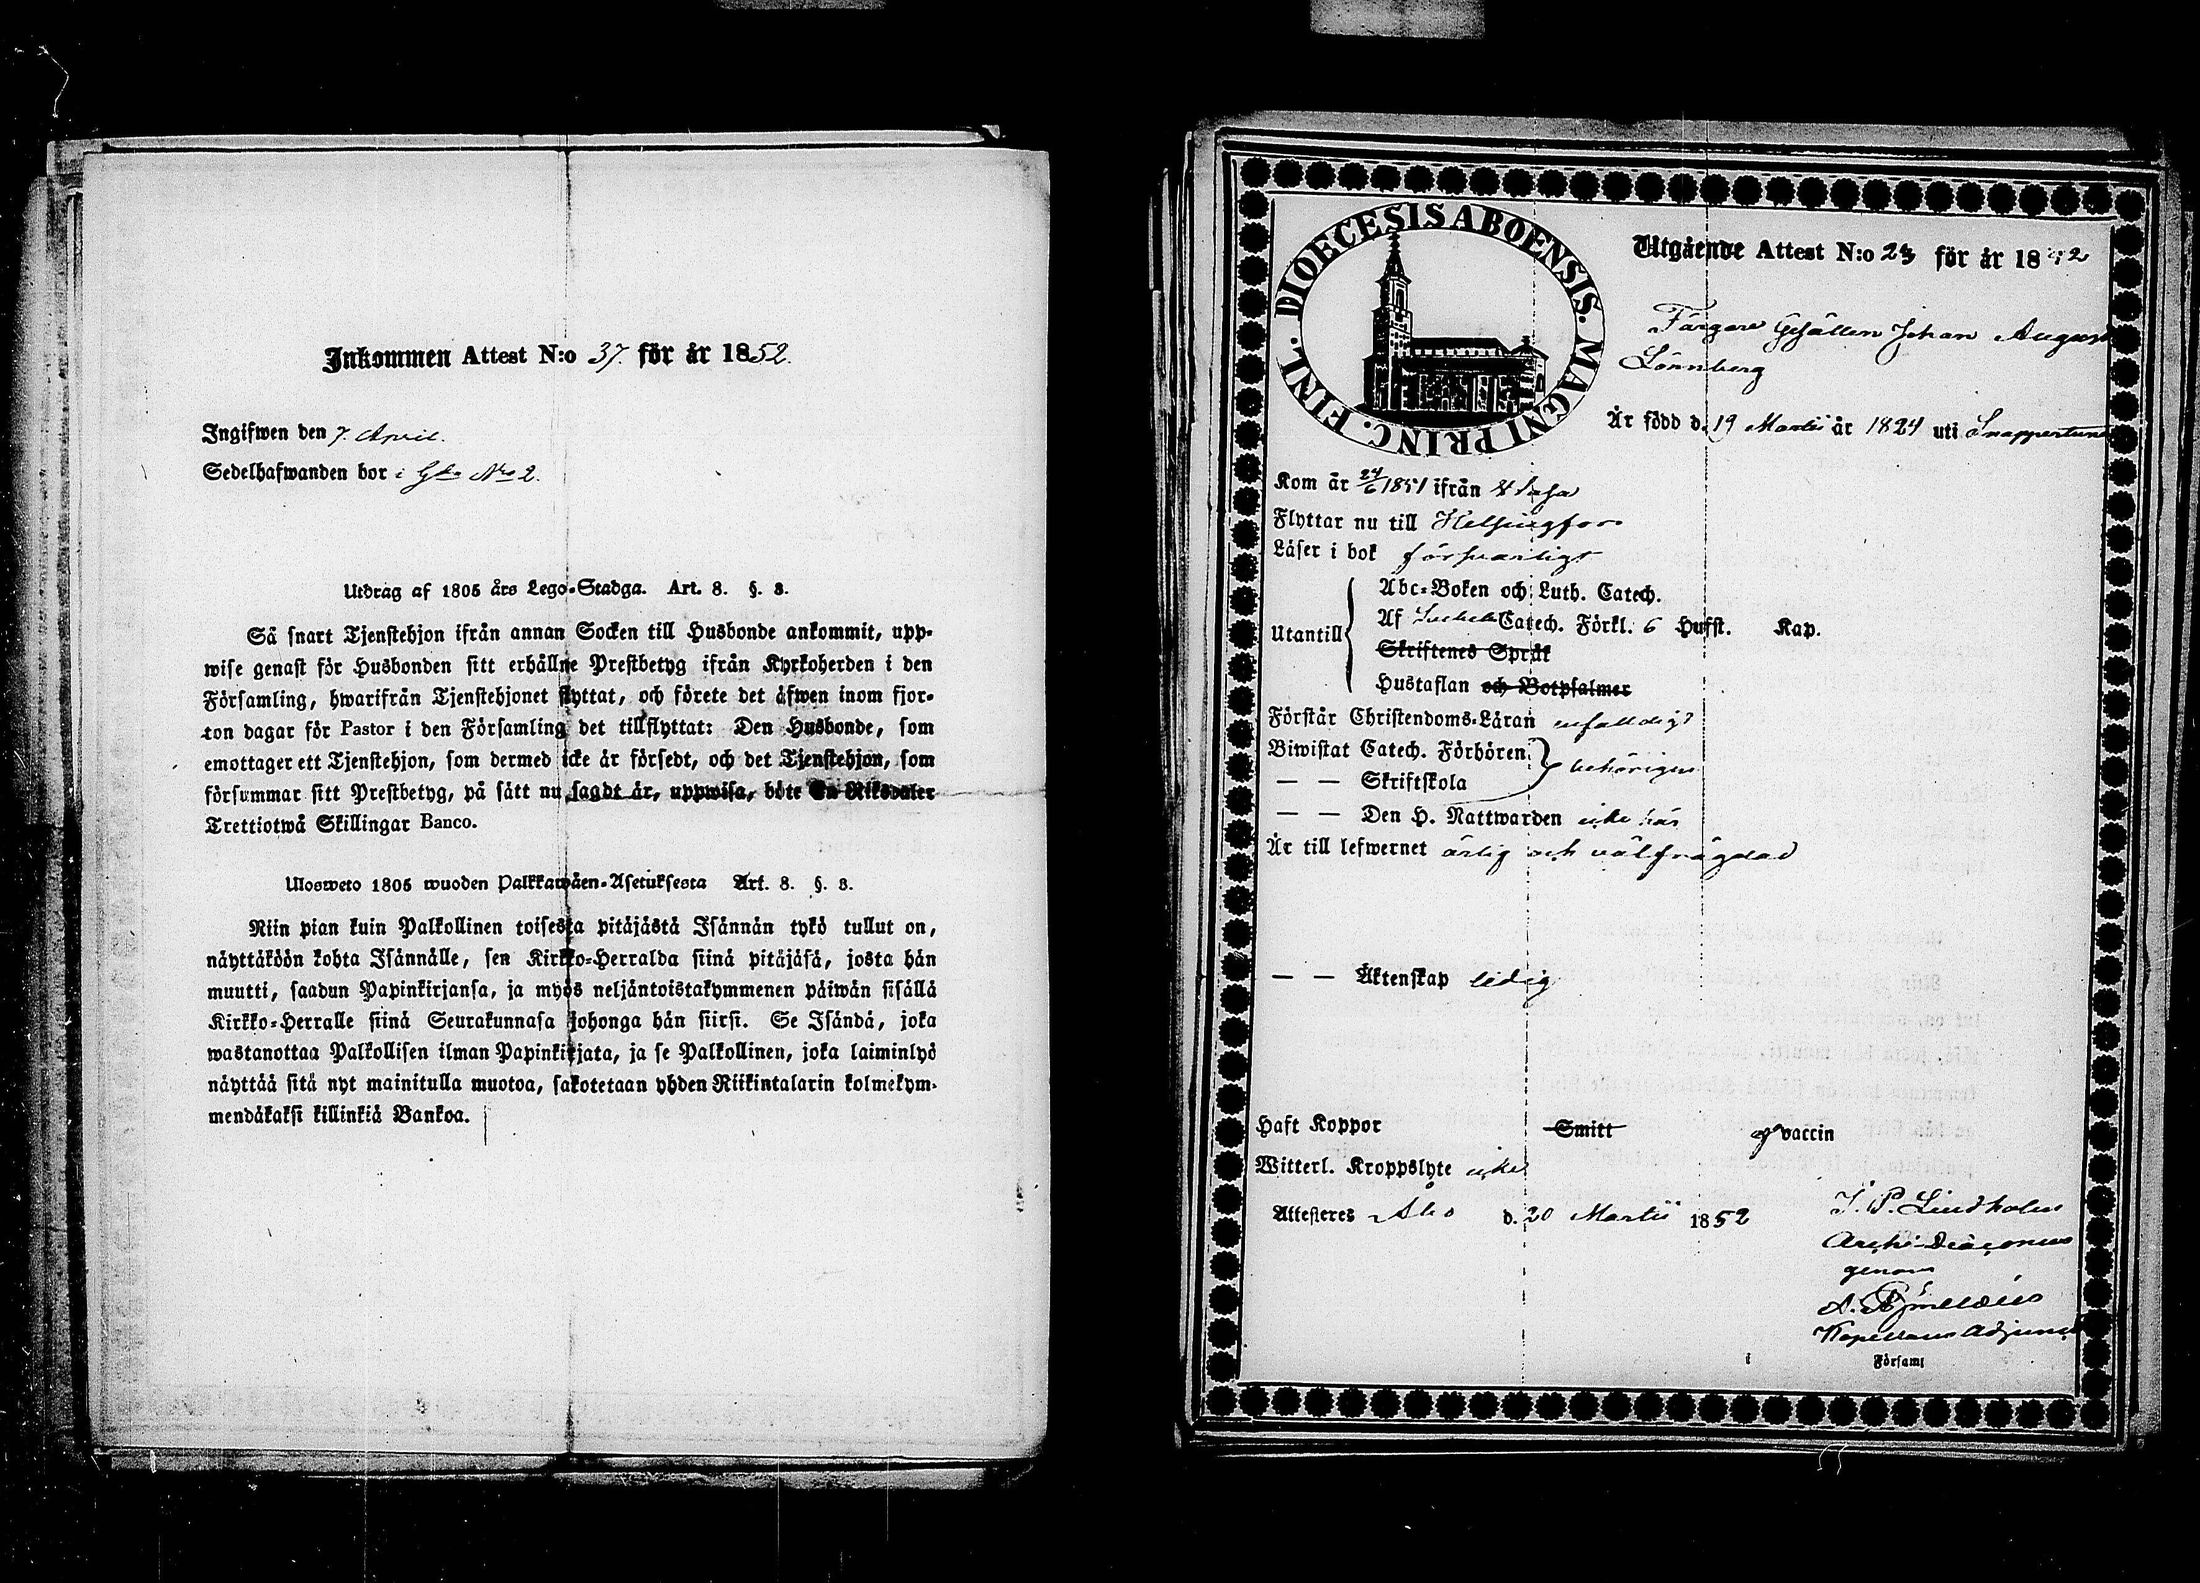 Inkommen Attest N:o 37. för år 1852.
Ingifwen den 7. April.
Sedelhafwanden bor i Gln No 2.
Utdrag af 1805 års Lego-Stadga. Art. 8. §. 3.
Så snart Tjenstehjon ifrån annan Socken till Husbonde ankommit, upp-
wise genast för Husbonden sitt erhållne Prestbetyg ifrån Kyrkoherden i den
Församling, hwarifrån Tjenstehjonet flyttat, och förete det äfwen inom fjor-
ton dagar för Pastor i den Församling det tillflyttat: Den Husbonde, som
emottager ett Tjenstehjon, som dermed icke är försedt, och det Tjenstehjon, som
försummar sitt Prestbetyg, på sätt nu sagdt är, uppwisa, böte En Riksdaler
Trettiotwå Skillingar Banco.
Ulosweto 1805 wuoden Palkkawäen-Asetuksesta Art. 8. §. 3.
Niin pian kuin Palkollinen toisesta pitäjästä Isännän tykö tullut on,
näyttäköön kohta Isännälle, sen Kirkko-Herralda siinä pitäjäsä, josta hän
muutti, saadun Papinkirjansa, ja myös neljäntoistakymmenen päiwän sisällä
Kirkko-Herralle siinä Seurakunnasa johonga hän siirsi. Se Isändä, joka
wastanottaa Palkollisen ilman Papinkirjata, ja se Palkollinen, joka laiminlyö
näyttää sitä nyt mainitulla muotoa, sakotetaan yhden Riikintalarin kolmekym-
mendäkaksi killinkiä Bankoa.
DIOECESIS ABOENSIS. MAGNI PRINC. FINL.
Utgående Attest N:o 23 för år 1852
Färgare Gesällen Johan August
Lönnberg
Är född d. 19 Martii år 1824 uti Snappertuna
Kom år 24/6 1851 ifrån Wasa
Flyttar nu till Helsingfors
Läser i bok försvarligt
Utantill
Abc-Boken och Luth. Catech.
Af Catech. Förkl. 6 Hufst. Kap.
Skriftenes Språk
Hustaflan och Botpsalmer
Förstår Christendoms-Läran enfaldigt
Biwistat Catech. Förhören
— — Skriftskola
behörigen
— — Den H. Nattwarden icke här
Är till lefwernet ärlig och välfrägdad
— — Äktenskap ledig
Haft Koppor Smitt af vaccin
Witterl. Kroppslyte icke
Attesteres Åbo d. 20 Martii 1852
J. P. Lindholm
Archi-Diaconus
genom
Kapellans Adjunct
i Församl